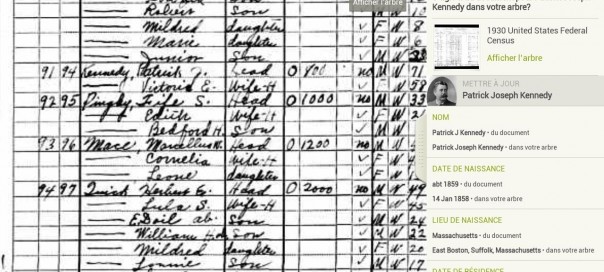 Robert Son
Mildred daughter F W
Marie daughter F W 6
Junior Son M W
91 94 Kennedy, Patrick J. Head O 800 no M W 71
Victoria E. Wife-H F W 58
92 95 S. Head O 1000 no M W 33
Edith Wife-H F W 2
Bedford H. Son M W
93 96 Mace, Marcellus W. Head O 1200 no M W
Cornelia Wife-H F W
Leone daughter F W
94 97 Quick Head O 2000 no M W 49
Lula S. Wife-H F W 45
E. Doil ab. Son M W 24
William H. Son M W 22
Mildred daughter F W 20
Lonnie Son M W 17
Afficher l'arbre
Kennedy dans votre arbre?
1930 United States Federal
Census
Afficher l'arbre
METTRE À JOUR
Patrick Joseph Kennedy
NOM
Patrick J Kennedy • du document
Patrick Joseph Kennedy • dans votre arbre
DATE DE NAISSANCE
abt 1859 • du document
14 Jan 1858 • dans votre arbre
LIEU DE NAISSANCE
Massachusetts • du document
East Boston, Suffolk, Massachusetts • dans votre arbre
DATE DE RÉSIDENCE